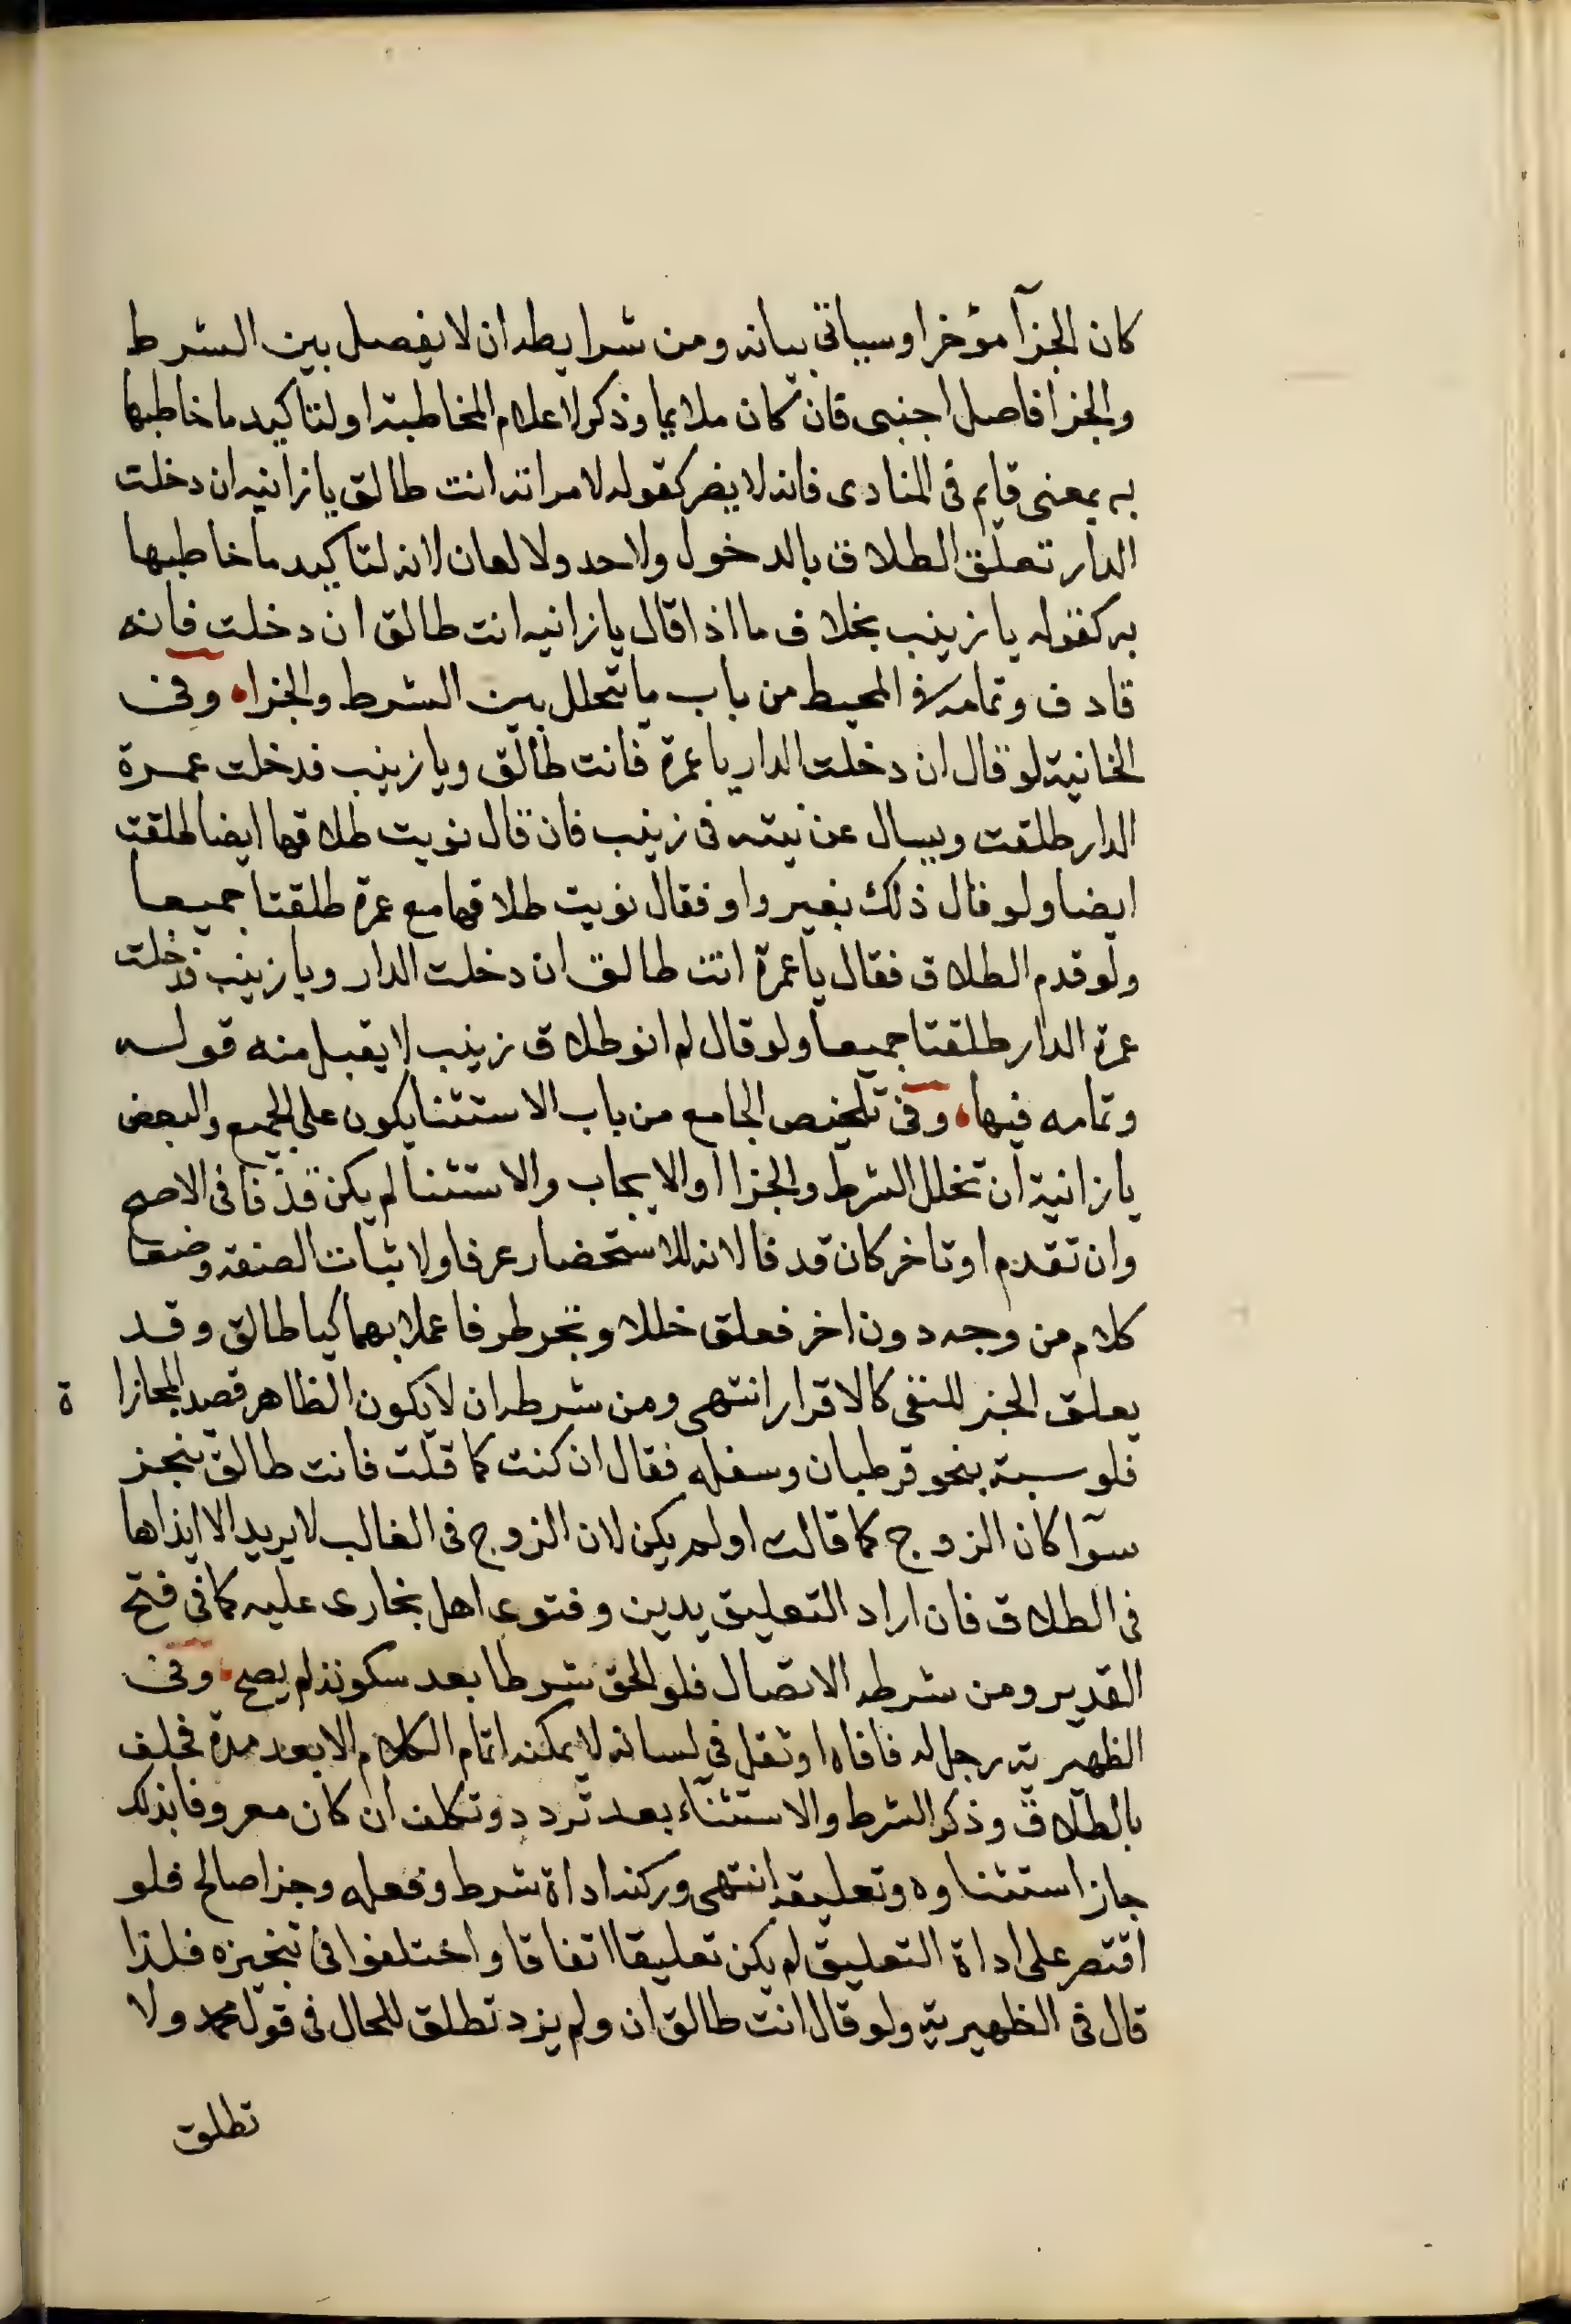 كان الجزآ مؤخرا وسياتي بيانه ومن شرايطه ان لا يفصل بين الشرط
والجزا فاصل اجنبي فان كان ملايما وذكر لاعلام المخاطبة او لتاكيد ما خاطبها
به بمعنى قايم في المنادى فانه لا يضر كقوله لامراته انت طالق يا زانيه ان دخلت
الدار تعلق الطلاق بالدخول ولا حد ولا لعان لانه لتاكيد ما خاطبها
به كقوله يا زينب بخلاف ما اذا قال يا زانيه انت طالق ان دخلت فانه
قاذف وتمامه في المحيط من باب ما يتخلل بين الشرط والجزا وفي
الخانية لو قال ان دخلت الدار يا عمرة فانت طالق ويا زينب فدخلت عمرة
الدار طلقت ويسال عن نيته في زينب فان قال نويت طلاقها ايضا طلقت
ايضا ولو قال ذلك بغير واو فقال نويت طلاقها مع عمرة طلقتا جميعا
ولو قدم الطلاق فقال يا عمرة انت طالق ان دخلت الدار ويا زينب فدخلت
عمرة الدار طلقتا جميعا ولو قال لم انو طلاق زينب لا يقبل منه قوله
وتمامه فيها وفي تلخيص الجامع من باب الاستثنا يكون على الجميع والبعض
يا زانية ان تخلل الشرط والجزا او الايجاب والاستثنا لم يكن قذفا في الاصح
وان تقدم او تاخر كان قدفا لانه للاستحضار عرفا ولاثبات الصفة وضعا
كلام من وجه دون اخر فعلق خللا ونجز طرفا عملا بهما كيا طالق وقد
يعلق الخبر للنفى كالاقرار انتهى ومن شرطه ان لا يكون الظاهر قصد المجازا
ة
فلو سبته بنحو قرطبان وسفله فقال ان كنت كما قلت فانت طالق تنجز
سوآ كان الزوج كما قالت او لم يكن لان الزوج في الغالب لا يريد الا ايذاها
في الطلاق فان اراد التعليق يدين وفتوى اهل بخارى عليه كما في فتح
القدير ومن شرطه الاتصال فلو الحق شرطا بعد سكوته لم يصح وفي
الظهيرية رجل له فافاه او ثقل في لسانه لا يمكنه اتمام الكلام الا بعد مدة فحلف
بالطلاق وذكر الشرط والاستثناء بعد تردد وتكلف ان كان معروفا بذلك
جاز استثناوه وتعليقه انتهى وركنه اداة شرط وفعله وجزا صالح فلو
اقتصر على اداة التعليق لم يكن تعليقا اتفاقا واختلفوا في تنجيزه فلذا
قال في الظهيرية ولو قال انت طالق ان ولم يزد تطلق للحال في قول محمد ولا
تطلق